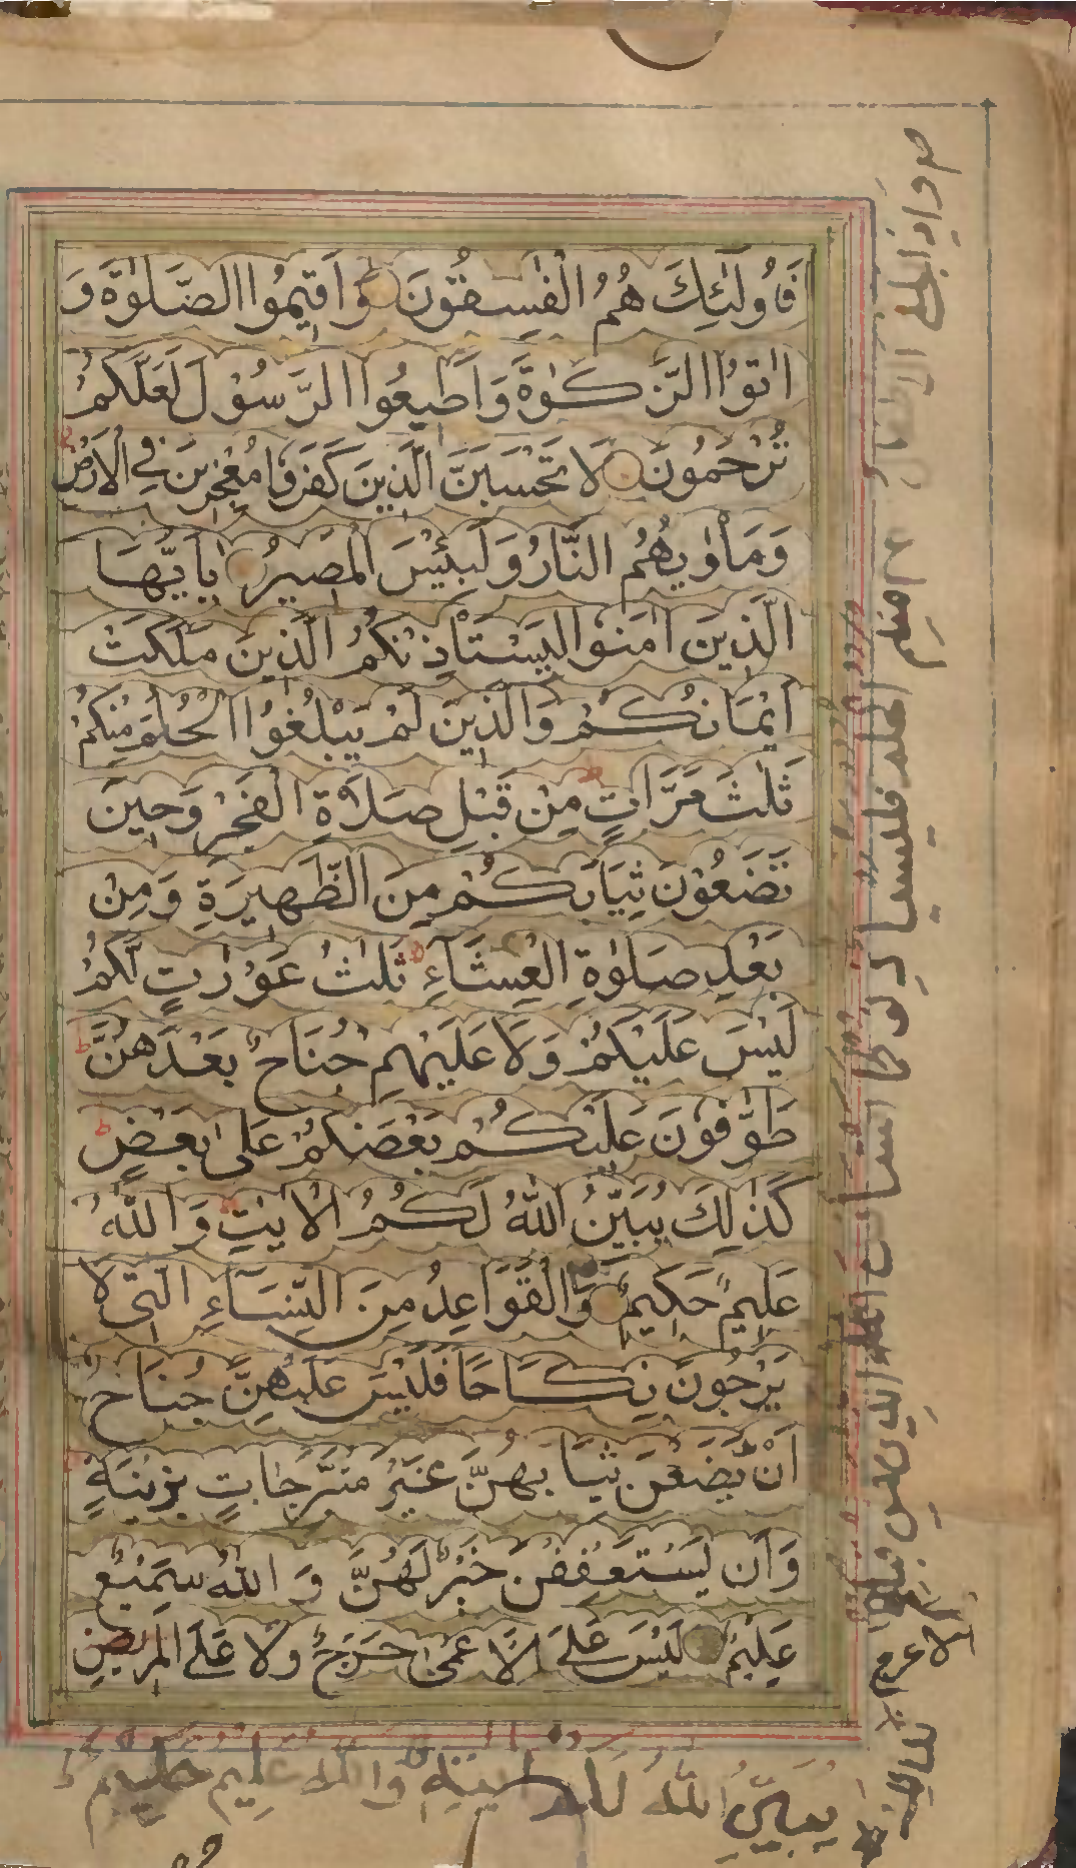 فَاُولٰٓئِكَ هُمُ الْفٰسِقُوْنَ وَاَقِيْمُوا الصَّلٰوةَ وَ
اٰتُوا الزَّكٰوةَ وَاَطِيْعُوا الرَّسُوْلَ لَعَلَّكُمْ
تُرْحَمُوْنَ لَا تَحْسَبَنَّ الَّذِيْنَ كَفَرُوْا مُعْجِزِيْنَ فِي الْاَرْضِ
وَمَاْوٰيهُمُ النَّارُ وَلَبِئْسَ الْمَصِيْرُ يٰاَيُّهَا
الَّذِيْنَ اٰمَنُوا لِيَسْتَاْذِنْكُمُ الَّذِيْنَ مَلَكَتْ
اَيْمَانُكُمْ وَالَّذِيْنَ لَمْ يَبْلُغُوا الْحُلُمَ مِنْكُمْ
ثَلٰثَ مَرَّاتٍ مِنْ قَبْلِ صَلَاةِ الْفَجْرِ وَحِيْنَ
تَضَعُوْنَ ثِيَابَكُمْ مِنَ الظَّهِيْرَةِ وَمِنْ
بَعْدِ صَلٰوةِ الْعِشَآءِ ثَلٰثُ عَوْرٰتٍ لَّكُمْ
لَيْسَ عَلَيْكُمْ وَلَا عَلَيْهِمْ جُنَاحٌ بَعْدَهُنَّ
طَوّٰفُوْنَ عَلَيْكُمْ بَعْضُكُمْ عَلٰى بَعْضٍ
كَذٰلِكَ يُبَيِّنُ اللّٰهُ لَكُمُ الْاٰيٰتِ وَاللّٰهُ
عَلِيْمٌ حَكِيْمٌ وَالْقَوَاعِدُ مِنَ النِّسَآءِ الّٰتِيْ لَا
يَرْجُوْنَ نِكَاحًا فَلَيْسَ عَلَيْهِنَّ جُنَاحٌ
اَنْ يَّضَعْنَ ثِيَابَهُنَّ غَيْرَ مُتَبَرِّجَاتٍ بِزِيْنَةٍ
وَاَنْ يَسْتَعْفِفْنَ خَيْرٌ لَهُنَّ وَاللّٰهُ سَمِيْعٌ
عَلِيْمٌ لَيْسَ عَلَى الْاَعْمٰى حَرَجٌ وَلَا عَلَى الْمَرِيْضِ
منكم الحلم فليستاذنوا كما استاذن الذين من قبلهم
يبين الله لكم اٰيٰته والله عليم حكيم